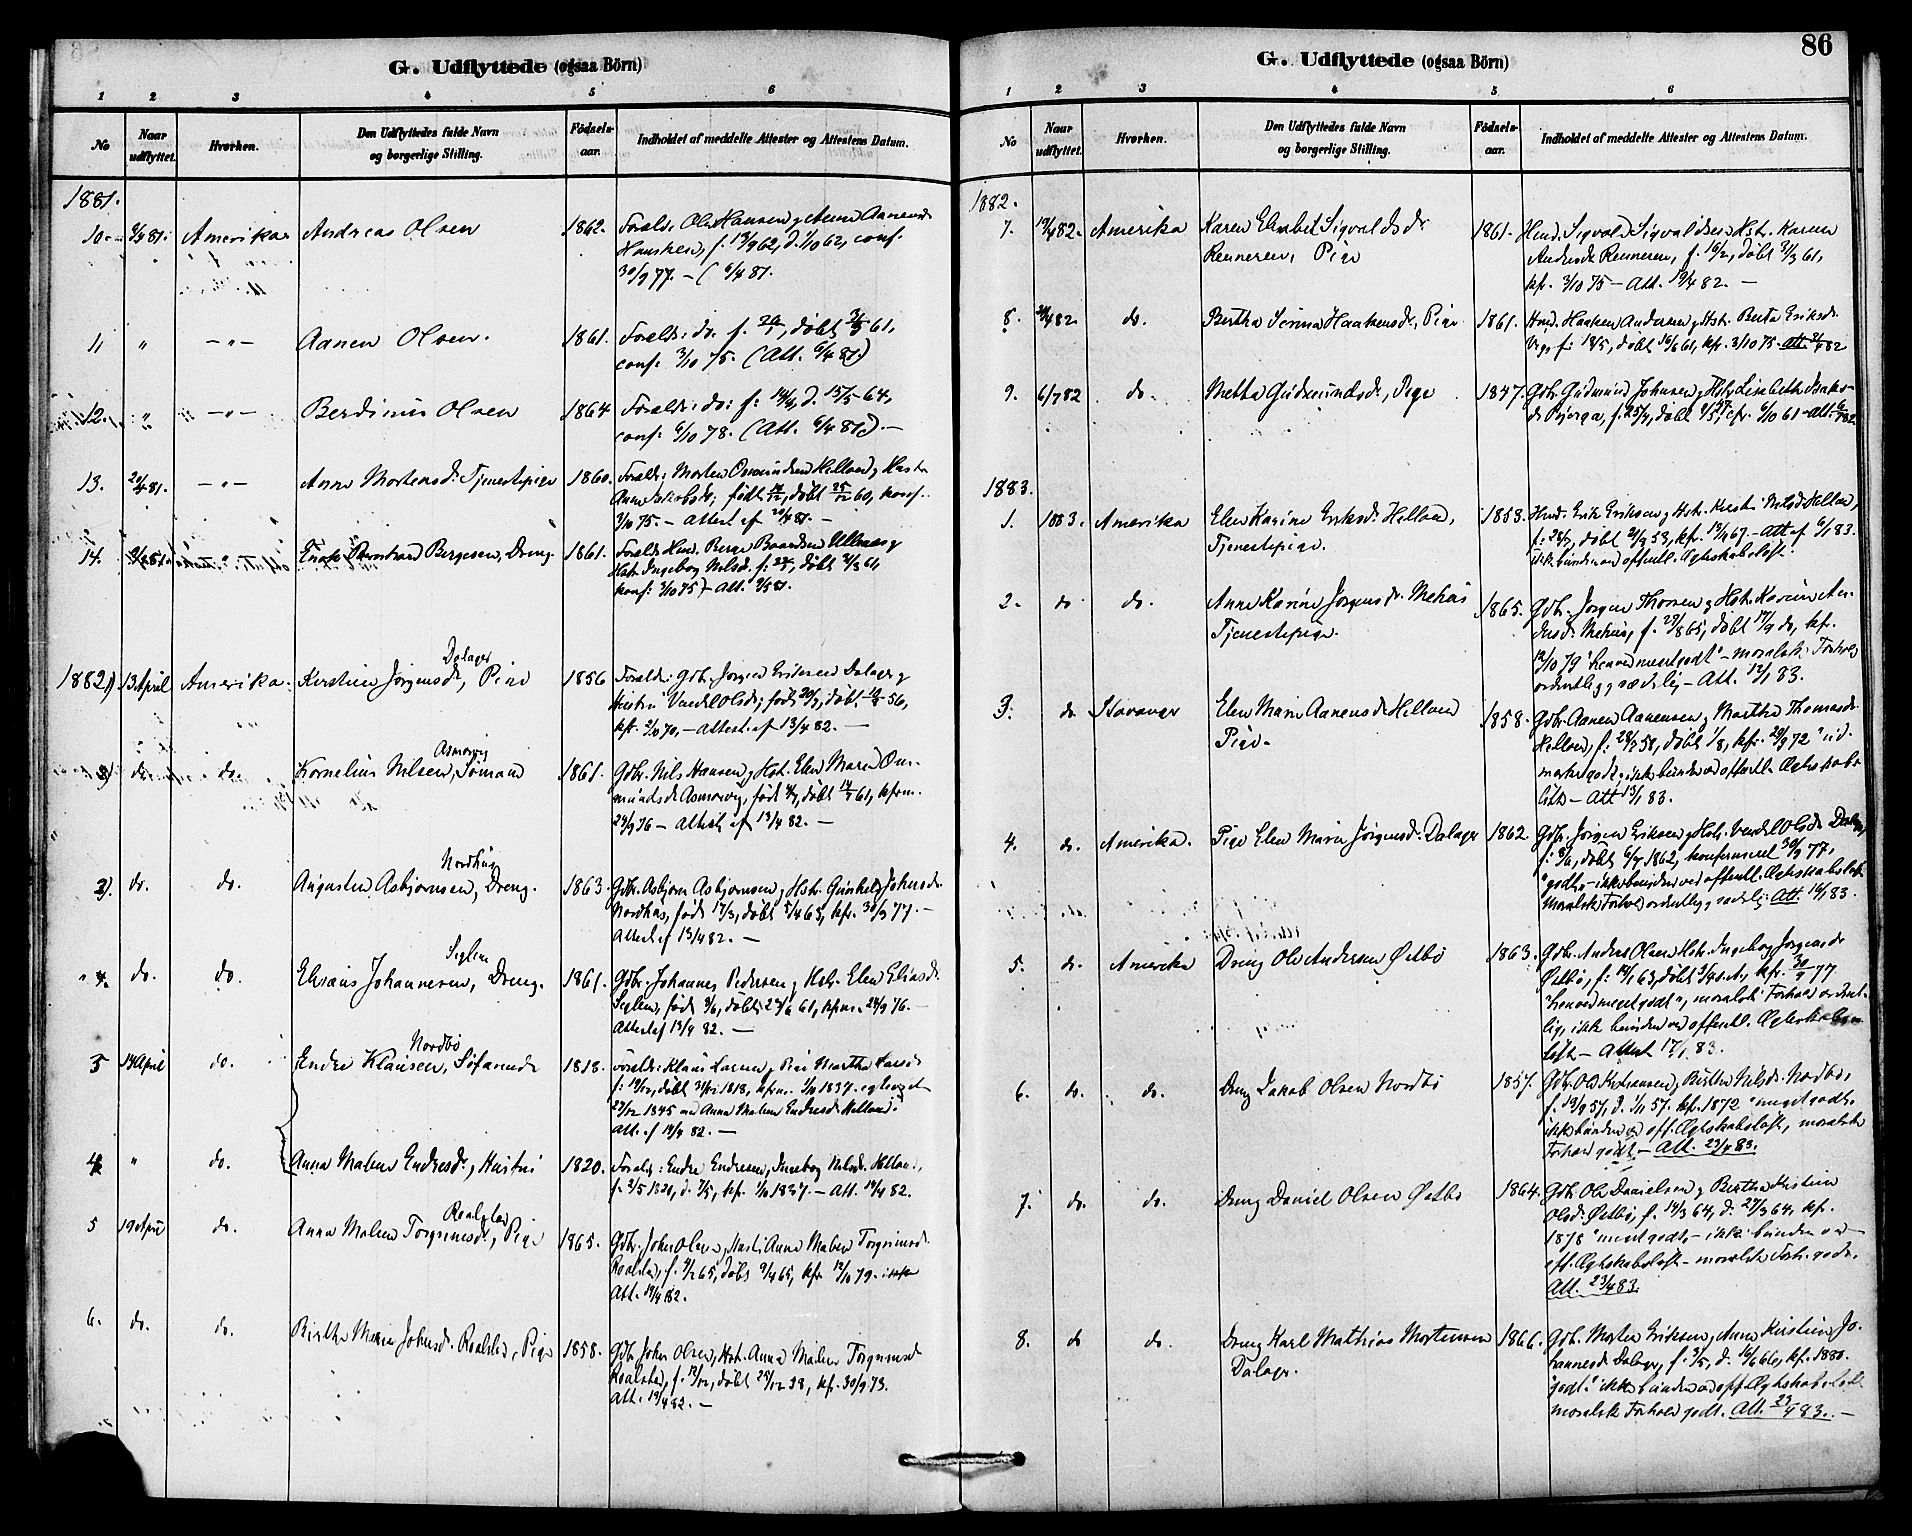 G. Udflyttede (ogsaa Börn)
1 2 3 4 5 6
No
Naar udflyttet.
Hvorhen.
Den Udflyttedes fulde Navn
og borgerlige Stilling.
Fødsels-
aar.
Indholdet af meddelte Attester og Attestens Datum.
1881.
10. 6/4 81. Amerika Andreas Olsen 1862. Forald: Ole Hansen g Anna Aanensd
f. 13/9 62, d. 1/10 62, conf.
30/9 77. – (6/4 81.
11 " – " – Aanen Olsen. 1861. Forald: do. f. döbt 61,
conf. 3/10 75. (Att. 6/4 81.)
12. " – " – Berdinus Olsen 1864 Forald: do: f. 14/4, d. 15/5 64,
conf: 6/10 78. (Att. 6/4 81). –
13. 20/4 81. – " – Anna Mortensd. Tjenestepige 1860. Forald: Morten Osmundsen Helland g Hustr
Anna Jakobsd; født döbt 60, konf.
3/10 75. – Attest af 20/4 81. –
14. Bernhard Bergesen, Dreng. 1861. Forald: Hmd. Berge Baardsen
Hstr. Ingeborg Nilsd. f. döbt 61,
konf: 3/10 75) – Att.
1882. 1) 13 April Amerika. Kirstine Jörgensd, Dalager Pige 1856 Forald: Gdbr. Jörgen Eriksen Dalager g
Hustru Vendel Olsd, født döbt 56,
kft. 2/10 70, – Attest af 13/4 82. –
2) do. do. Kornelius Nilsen, Asmarvig Sömand 1861. Gdbr. Nils Hansen g Hst. Elen Maria Os-
mundsd Asmarvig, født döbt 61, kfrm.
24/9 76 – Attest af 13/4 82. –
3). do. do. Augusten Asbjörnsen, Nordhus Dreng. 1863 Gdbr. Asbjörn Asbjörnsen g Hst. Gunhild Johnsd.
Nordhus, født 17/3, döbt 5/4 63, kfr. 30/9 77. –
Attest af 13/4 82. –
4. do. do. Elisæus Johannesen, Seglem Dreng. 1861. Gdbr. Johannes Pedersen g Hst. Elen Eliasd.
Seglem, født 3/6, döbt 23/6 61, kfrm. 24/9 76. –
Attest af 13/4 82. –
5 14 April do. Endre Klausen, Nordbö 1818. Forald: Klaus Larsen g Martha
f: 19/12, döbt 31/12 1818, kfrm. 1/10 1837. egteviet
27/12 1845 med Anna Malene Endresd Helland.
Att. af 14/4 82. –
4 " do. Anna Malene Endresd, Hustru 1820. Forald: Endre Endresen, Ingeborg Nilsd. Helland,
f. 3/5 1820, d. 7/5, kfr. 1/10 1837. – Att. 14/4 82.
5 19 April do. Anna Malene Torgrimsd, Roalstad Pige 1865. Gdbr. John Olsen, Hustr. Anna Malene Torgrimsd.
Roalstad, f. 9/2 65, döbt 9/4 65, kfr. 12/10 79.
Att. 19/4 82.
6. do. do. Birthe Maria Johnsd. Roalstad, Pige 1858. Gdbr. John Olsen, Hst. Anna Malene Torgrimsd
Roalstad, f. 12/12, döbt 28/12 58, kfr. 30/9 73.
Att. 19/4 82. –
86
G. Udflyttede (ogsaa Börn)
1 2 3 4 5 6
No
Naar udflyttet.
Hvorhen.
Den Udflyttedes fulde Navn
og borgerlige Stilling.
Fødsels-
aar.
Indholdet af meddelte Attester og Attestens Datum.
1882.
7. 19/4 82. Amerika Karen Elisabet Sigvaldsd. 1861. Hmd. Sigvald Sigvaldsen Hst. Karen
Renneren, Pige Andersd. Renneren, f. 16/2, döbt 3/3 61,
kfr. 3/10 75 – Att. 19/4 82. –
8. 82 do. Bertha Serina Haakensd, Pige 1861. Hmd. Haaken Andersen g Hst. Berta Eriksd.
f: 18/5, döbt 16/6 61, kfr. 3/10 75. Att. 82
9. 6/7 82 do. Metta Gudmundsd, Pige 1847. Gdbr. Gudmund Johnsen g Hst. Lisabeth Isaks-
d. f. 25/4, döbt kfr. 6/10 61 – Att. 82.
1883.
1. 1883. Amerika Elen Karine Eriksd. Helland, 1853. Hmd. Erik Eriksen g Hst. Kirsti Nilsd. Helland,
Tjenestepige. f: döbt 53, kfr. 67. – Att af 6/1 83.
ikke bunden ved offentl. Ægteskabsløfte.
2. do do. Anne Karine Jörgensd. Mehus 1865. Gdbr. Jörgen Thorsen g Hst. Karine An-
Tjenestepige. dersd. Mehus, f. 27/8 65, döbt 17/9 do, kfr.
12/10 79 "henved meget godt" – moralsk Forhold
ordentlig g sædelig – Att. 12/1 83.
3. do. Stavanger Elen Marie Aanensd. Helland 1858. Gdbr. Aanen Aanensen g Martha Thomasd.
Pige. Helland, f: 28/7 58, döbt 1/8, kfr. 29/9 72 "ud-
mærket godt", ikke bunden ved offentl. Ægteskabs-
löfte – Att 13/1 83.
4. do. Amerika. Pige Elen Maria Jörgensd. Dalager 1862. Gdbr. Jörgen Eriksen g Hst. Vendel Olsd Dalager
f: 8/6, döbt 6/7 1862, konfirmeret 30/9 77,
"godt" – ikke bunden ved offentl. Ægteskabsløft
Moralsk Forhold ordentlig g sædelig. Att. 16/1 83.
5. do. Amerika Dreng Ole Andersen Østbö 1863. Gdbr. Anders Olsen Hst. Ingeborg Jörgensd.
Østbö, f. 14/1 63, döbt kfr. 30/9 77
"henved meget godt", moralsk Forhold ordent-
lig, ikke bunden ved offentl. Ægteskabs-
løft – Attest 17/1 83.
6. do. do. Dreng Jakob Olsen Nordbö 1857. Gdbr. Ole Kristiansen g Birthe Nilsd. Nordbö,
f. 19/9 57, d. 1/11 57. kfr. 1872 "meget godt".
ikke bunden ved off. Ægteskabsløfte, moralsk
Forhold godt. – Att. 23/4 83.
7. do. do. Dreng Daniel Olsen Østbö 1864. Gdbr. Ole Danielsen g Birtha Kristine
Olsd. Østbö, f. 14/3 64, d. 27/3 64, kfr.
1878 "meget godt" – ikke bunden ved
off. Ægteskabsløft – moralsk Forh. godt.
Att. 23/4 83.
8. do do. Dreng Karl Mathias Mortensen 1866. Gdb. Morten Eriksen g Anne Kirstine Jo-
Dalager. hannesd. Dalager, f. 3/5, d. 16/6 66, kfr. 1880.
"godt". ikke bunden ved off. Ægteskabsløft
moralsk Forhold godt. Att. 23/4 83. –